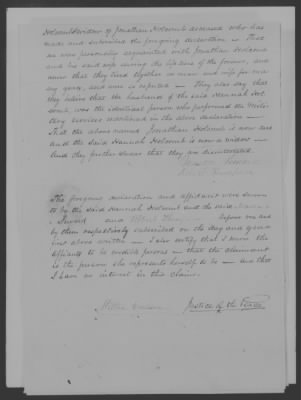 Holcomb widow of Jonathan Holcomb deceased who has
made and subscribed the foregoing declaration is That
we were personally acquainted with Jonathan Holcomb
and his said wife during the life time of the former, and
know that they lived together as man and wife for ma
ny years, and were so reputed - They also say that
they believe that the husband of the said Hannah Hol
comb, was the identical person who performed the Mili
tary services mentioned in the above declaration -
That the above named Jonathan Holcomb is now
and the said Hannah Holcomb is now a widow -
And they further swear that they are disinterested.
The foregoing declaration and affidavit were sworn
to by the said Hannah Holcomb and the said
and before me and
by them respectively subscribed on the day and year
first above written - I also certify that I know the
affiants to be credible persons - that the claimant
is the person she represents herself to be - and that
I have no interest in this claim.
Justice of the Peace